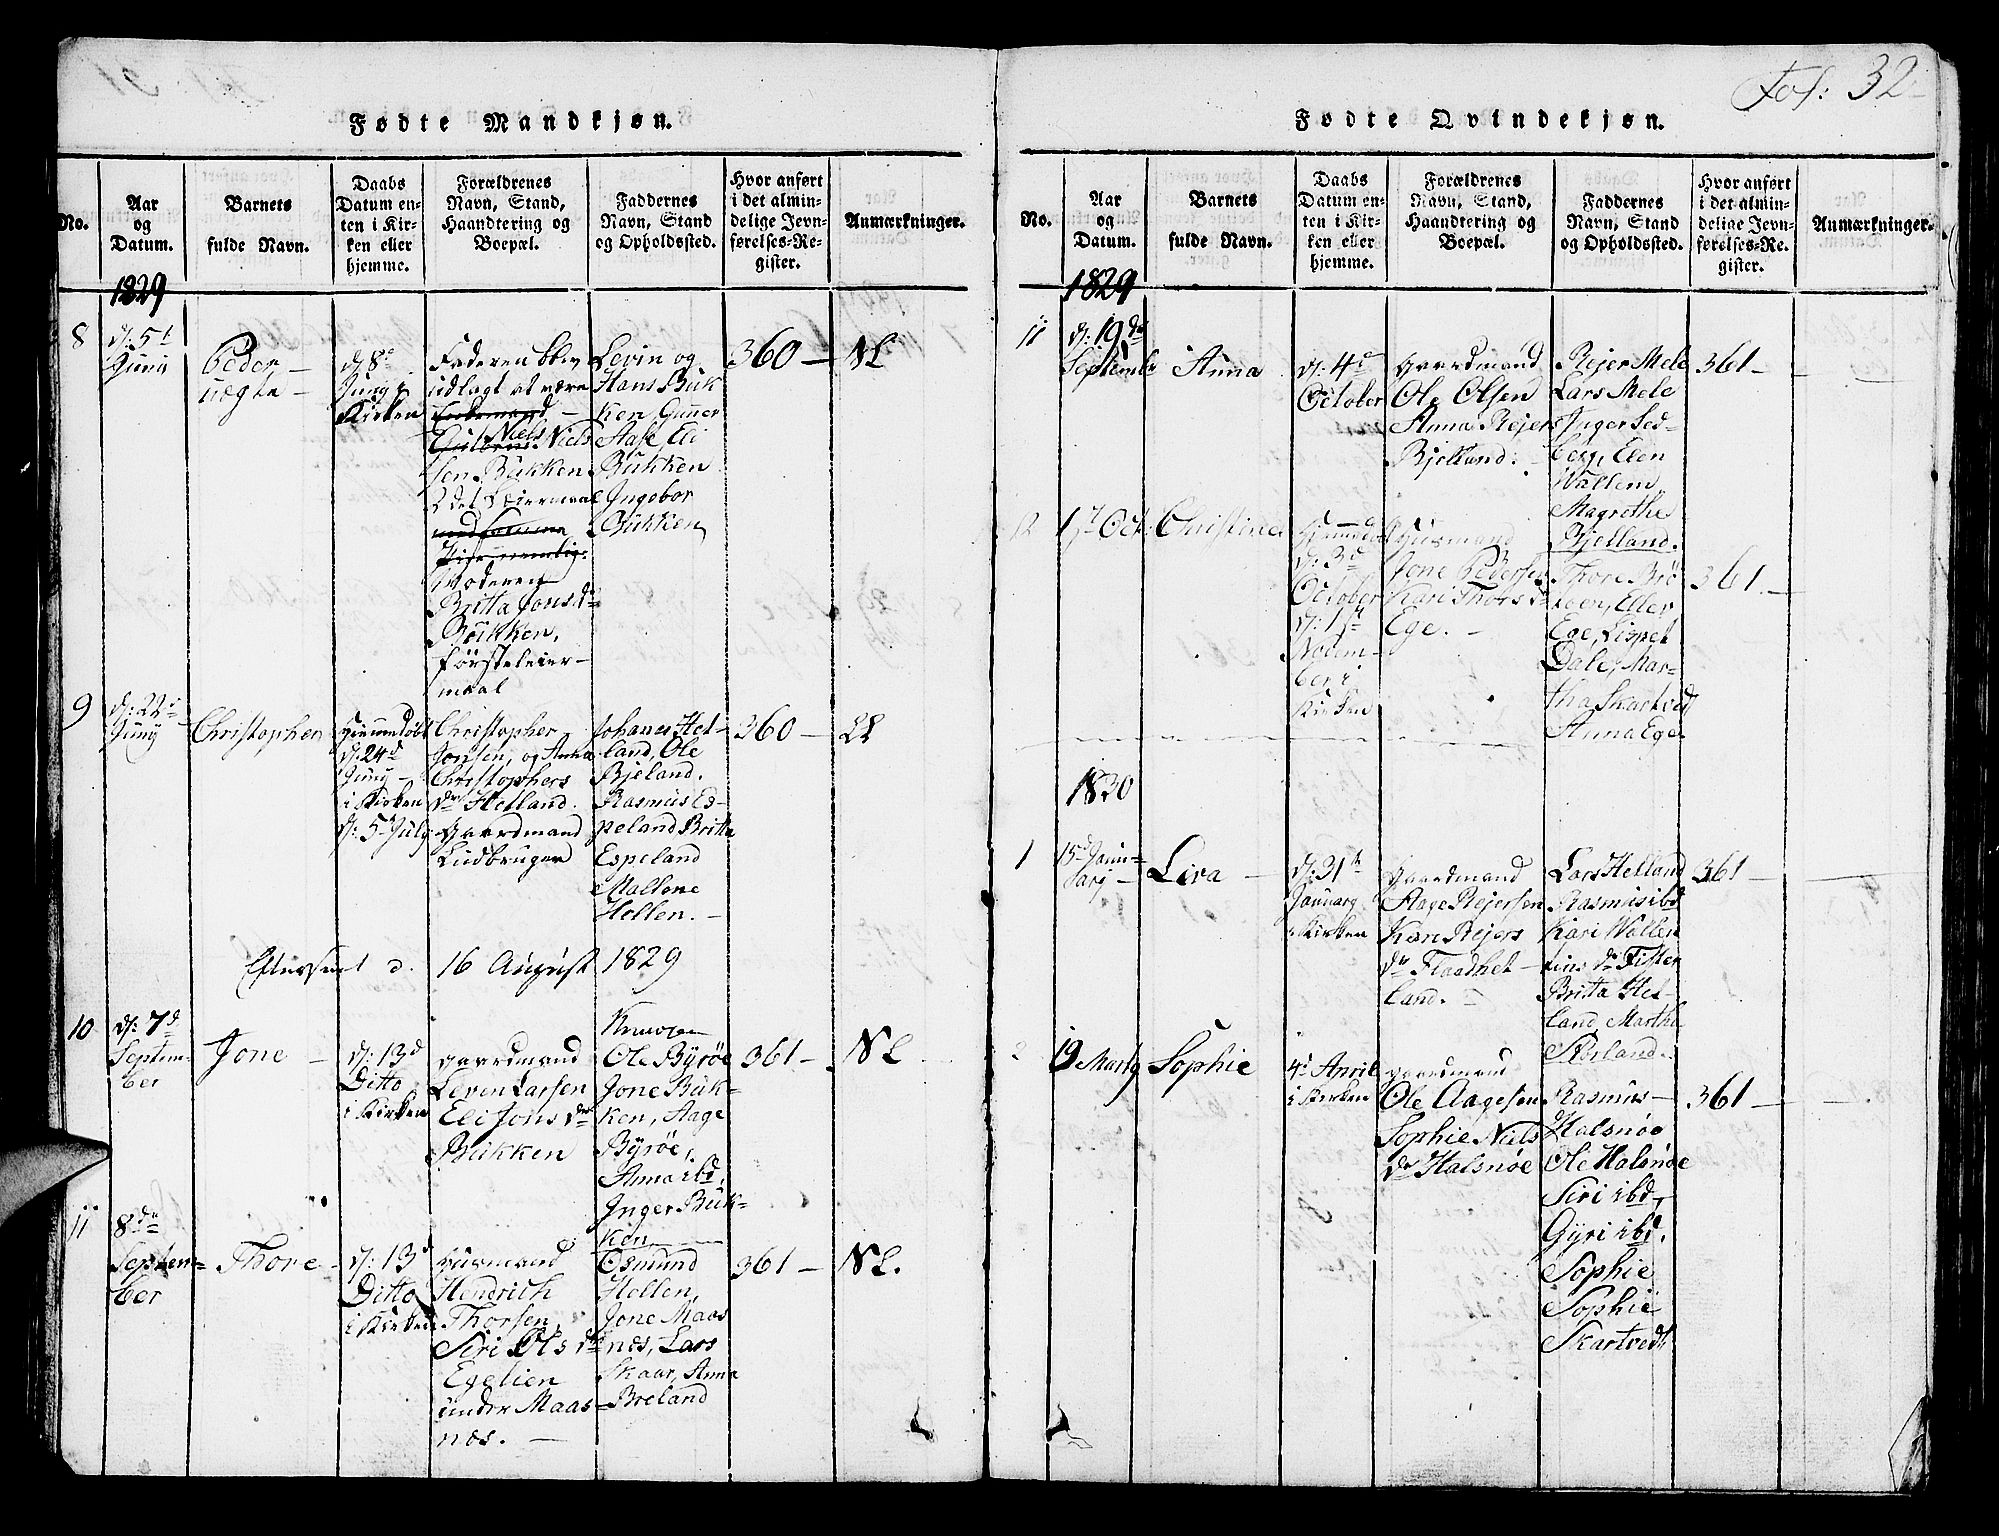 Fol: 32
Fødte Mandkjøn.
No.
Aar
og
Datum.
Barnets
fulde Navn.
Daabs
Datum en-
ten i Kir-
ken eller
hjemme.
Forældrenes
Navn, Stand,
Haandtering og
Boepæl.
Faddernes
Navn, Stand
og Opholdssted.
Hvor anført
i det almin-
delige Jevn-
førelses-Re-
gister.
Anmærkninger.
1829
8
d: 5t
Juny
Peder
uægte
d: 8de
Juny i
Kirken
Faderen blev
udlagt at være
Niels Niels
sen Bükken
2det Leiermaal
Moderen
Britta Jons dr
Böikken,
første leier-
maal
Levin og
Hans Bük
ken Guner
Aase, Eli
Bükken
Ingebor
Bükken
360 —
NL
9
d: 22de
Juny
Christopher
Hiemmedøbt
d: 24d
Juny
i Kirken
d: 5 July
Christopher
Jonsen, og Anna
Christophers
dr Helland.
Gaardmand
Ludbruger
Johanes Hel-
land, Ole
Bjeland.
Rasmus Es-
peland Britta
Espeland
Mallene
Hollen. —
360 —
LL
Efterseet d. 16 August 1829
10
d: 7d
Septem-
ber
Jone —
d: 13d
Ditto
i Kirken
Gaardmand
Leven Larsen
Eli Jons dr
Bükken
Ole Byrøe
Jone Bük-
ken, Aage
Byrøe,
Anna ibd,
Inger Bük-
ken
361 —
NL
11
8de
Septem-
ber
Thore
d: 13d
Ditto
i Kirken
Huusmand
Hendrich
Thorsen
Siri Ols dr
Egelien
under Maas-
næs. —
Osmund
Hellen,
Jone Maas
næs, Lars
Skaar, Anna
Breland
361 —
NL.
Fødte Qvindekjøn.
No.
Aar
og
Datum.
Barnets
fulde Navn.
Daabs
Datum en-
ten i Kir-
ken eller
hjemme.
Forældrenes
Navn, Stand,
Haandtering og
Boepæl.
Faddernes
Navn, Stand
og Opholdssted.
Hvor anført
i det almin-
delige Jevn-
førelses-Re-
gister.
Anmærkninger.
1829
11
d: 19de
Septembr
Anna
d: 4d
October
Gaardmand
Ole Olsen
Anna Rejers
Bjelland.
Rejer Mele
Lars Mele
Inger Sed-
berg, Elen
Wallem
Magrethe
Bjelland.
361 —
12
1t Oct.
Christine
Hiemmedøbt
d: 3d
October
d: 1ste
Novem-
ber i
Kirken
Huusmand
Jone Pedersen
Kari Thors dr
Ege. —
Thore Brö-
Eller
Ege, Lispet
Dale, Mar-
tha Skartved
Anna Ege
361. —
1830
1
15d Janu-
arj —
Liva —
d: 31te
Januarj
i Kirken
Gaardmand
Aage Rejersen
Kari Rejers
dr Flaadhet-
land. —
Lars Helland
Rasmus ibd
Kari Wallen
tins dr Fister
Britta Het-
land, Marthe
Størland.
361 —
2
19 Martj
Sophie
4d April
i Kirken
Gaardmand
Ole Aagesen
Sophie Niels
dr Halsnøe
Rasmus
Halsnøe
Ole Halsnøe
Siri ibd,
Gyri ibd,
Sophie
Sophie
Skartvedt
361 —